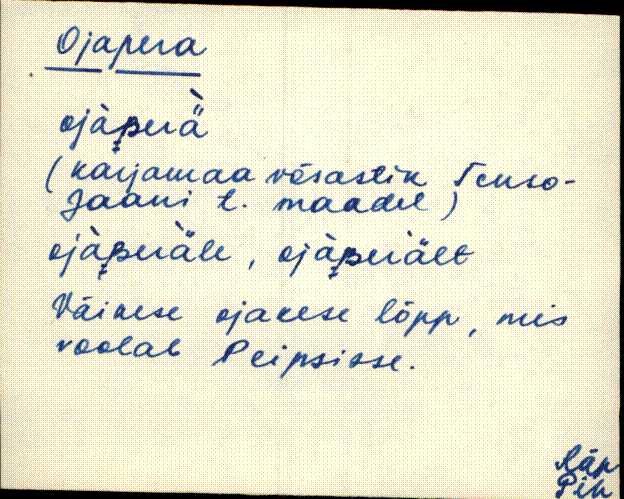 Ojapera
ojàperä̀
(karjamaa võsastik Tenso-
Jaani t. maadel)
ojàperä̀le, ojàperä̀lt
Väikese ojakese lõpp, mis
voolab Peipsisse.
Räp